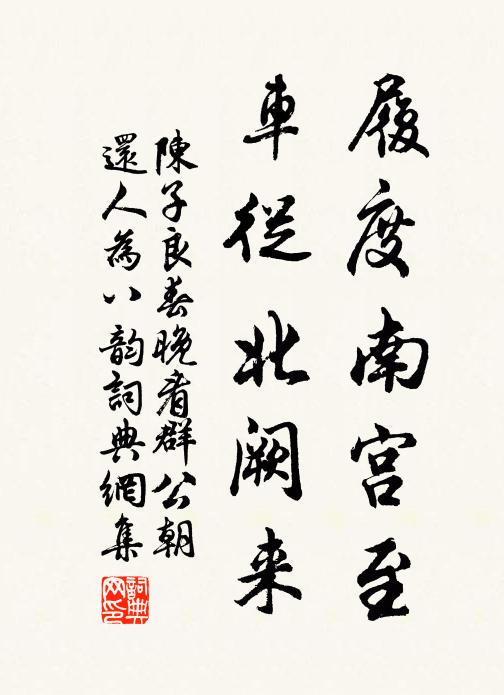 履度南宫至
車從北阙来
陳子良春晚看群公朝
還人為八韵詞典網集
詞典网印